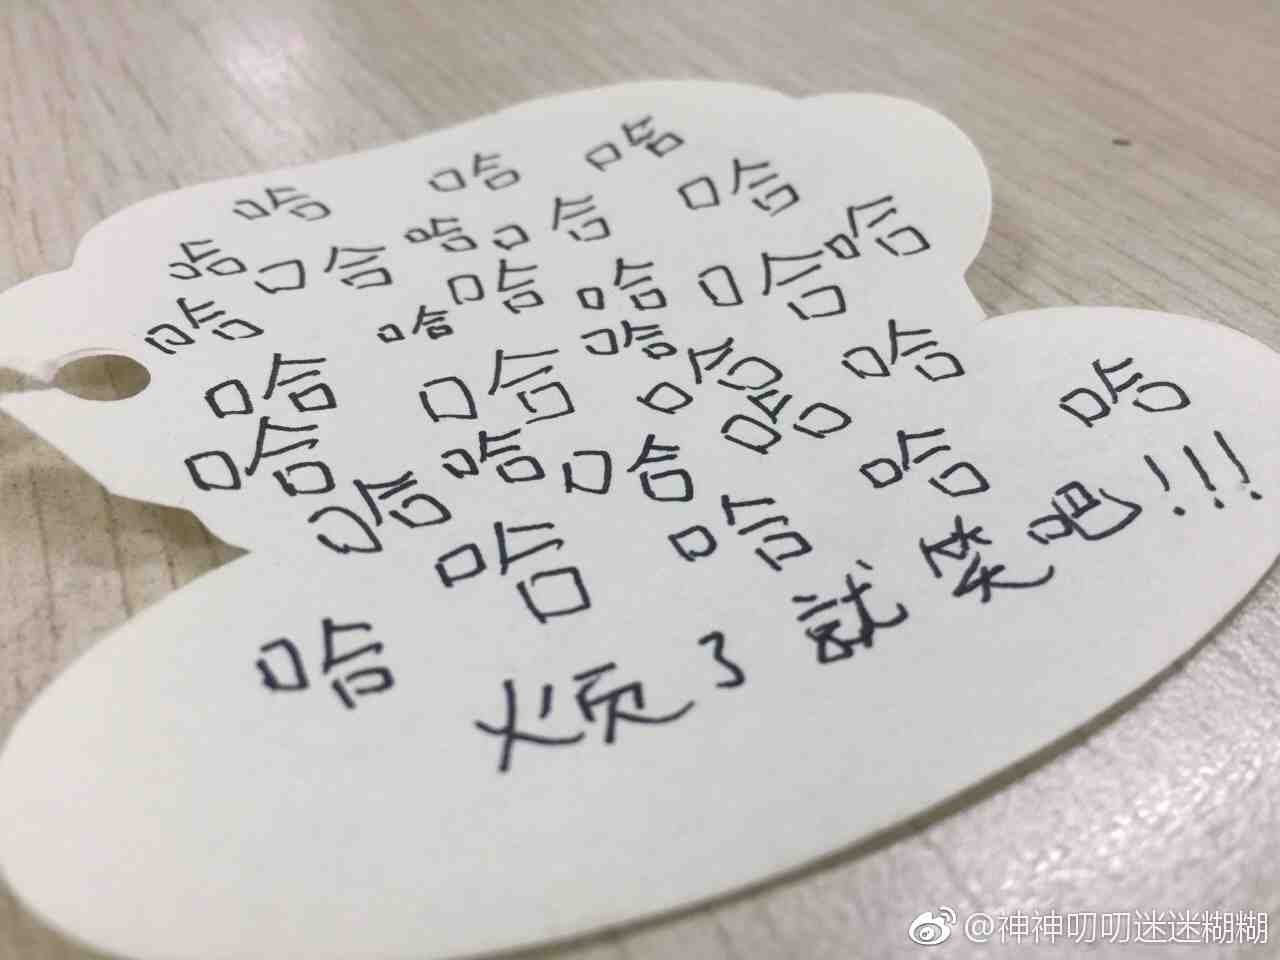 哈哈哈
哈哈哈哈哈
哈哈哈哈哈哈
哈哈哈哈哈
哈哈哈哈哈哈哈
哈哈哈
烦了就笑吧!!!
@神神叨叨迷迷糊糊